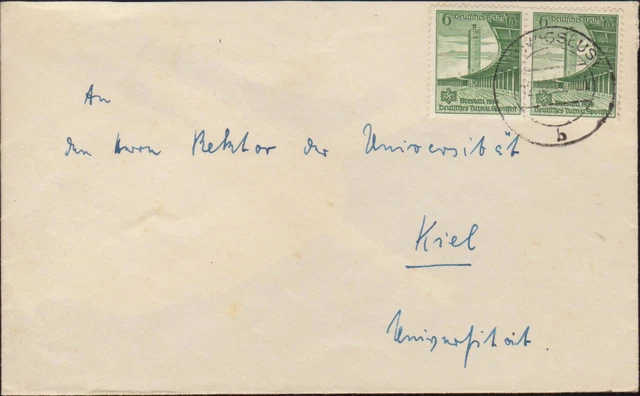 6 Deutsches Reich 6
Breslau 1938
Deutsches Turn-u. Sportfest
6 Deutsches Reich 6
Breslau 1938
Deutsches Turn-u. Sportfest
b
An
den Herrn Rektor der Universität
Kiel
Universität